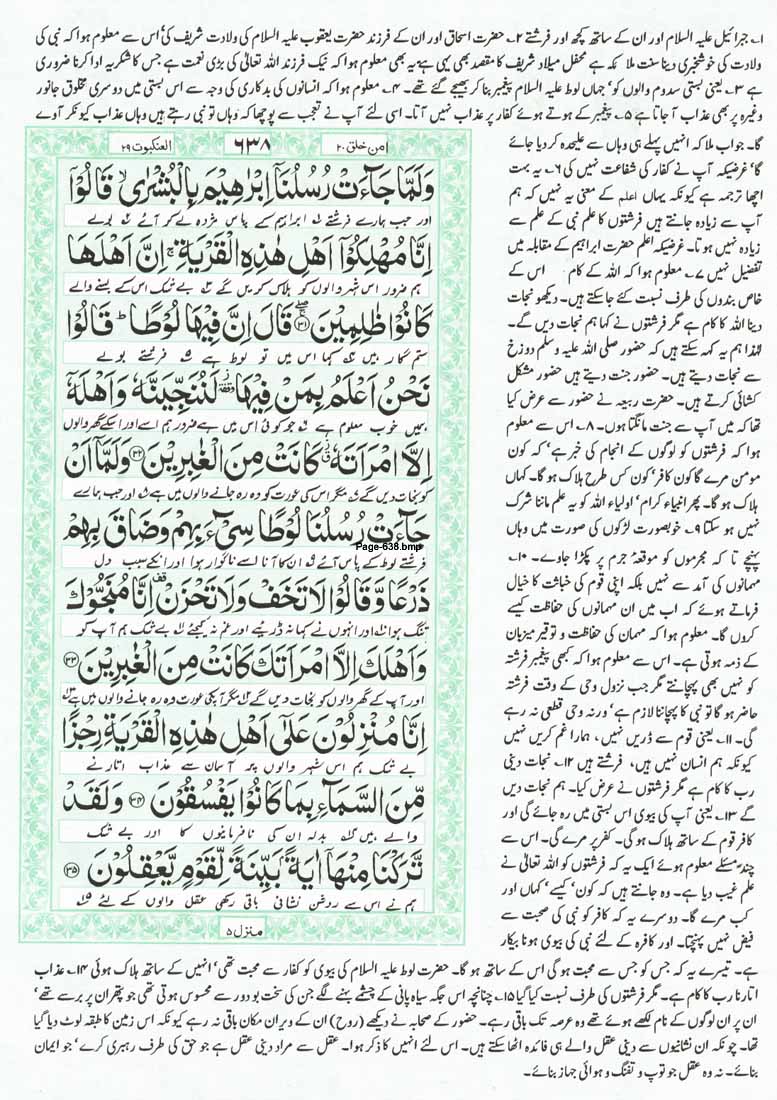 ۱۔ جبرائیل علیہ السلام اور ان کے ساتھ کچھ اور فرشتے ۲۔ حضرت اسحاق اور ان کے فرزند حضرت یعقوب علیہ السلام کی ولادت شریف کی' اس سے معلوم ہوا کہ نبی کی
ولادت کی خوشخبری دینا سنت ملائکہ ہے محفل میلاد شریف کا مقصد بھی یہی ہے۔ یہ بھی معلوم ہوا کہ نیک فرزند اللہ تعالیٰ کی بڑی نعمت ہے جس کا شکریہ ادا کرنا ضروری
ہے ۳۔ یعنی بستی سدوم والوں کو' جہاں لوط علیہ السلام پیغمبر بنا کر بھیجے گئے تھے۔ ۴۔ معلوم ہوا کہ انسانوں کی بدکاری کی وجہ سے اس بستی میں دوسری مخلوق جانور
وغیرہ پر بھی عذاب آ جاتا ہے ۵۔ پیغمبر کے ہوتے ہوئے کفار پر عذاب نہیں آتا۔ اسی لئے آپ نے تعجب سے پوچھا کہ وہاں تو نبی رہتے ہیں وہاں عذاب کیونکر آوے
گا۔ جواب ملا کہ انہیں پہلے ہی وہاں سے علیحدہ کر دیا جائے
گا' غرضیکہ آپ نے کفار کی شفاعت نہیں کی ۶۔ یہ بہت
اچھا ترجمہ ہے کیونکہ یہاں اعلم کے معنی یہ نہیں کہ ہم
آپ سے زیادہ جانتے ہیں فرشتوں کا علم نبی کے علم سے
زیادہ نہیں ہوتا۔ غرضیکہ اعلم حضرت ابراہیم کے مقابلہ میں
تفضیل نہیں ۷۔ معلوم ہوا کہ اللہ کے کام اس کے
خاص بندوں کی طرف نسبت کئے جا سکتے ہیں۔ دیکھو نجات
دینا اللہ کا کام ہے مگر فرشتوں نے کہا ہم نجات دیں گے۔
لہٰذا ہم یہ کہہ سکتے ہیں کہ حضور صلی اللہ علیہ وسلم دوزخ
سے نجات دیتے ہیں۔ حضور جنت دیتے ہیں حضور مشکل
کشائی کرتے ہیں۔ حضرت ربیعہ نے حضور سے عرض کیا
تھا کہ میں آپ سے جنت مانگتا ہوں۔ ۸۔ اس سے معلوم
ہوا کہ فرشتوں کو لوگوں کے انجام کی خبر ہے' کہ کون
مومن مرے گا کون کافر' کون کس طرح ہلاک ہو گا۔ کہاں
ہلاک ہو گا۔ پھر انبیاء کرام' اولیاء اللہ کو یہ علم ماننا شرک
نہیں ہو سکتا ۹۔ خوبصورت لڑکوں کی صورت میں وہاں
پہنچے تا کہ مجرموں کو موقعۂ جرم پر پکڑا جاوے۔ ۱۰۔
مہمانوں کی آمد سے نہیں بلکہ اپنی قوم کی خباثت کا خیال
فرماتے ہوئے کہ اب میں ان مہمانوں کی حفاظت کیسے
کروں گا۔ معلوم ہوا کہ مہمان کی حفاظت و توقیر میزبان
کے ذمہ ہوتی ہے۔ اس سے معلوم ہوا کہ کبھی پیغمبر فرشتہ
کو نہیں بھی پہچانتے مگر جب نزول وحی کے وقت فرشتہ
حاضر ہو گا تو نبی کا پہچاننا لازم ہے' ورنہ وحی قطعی نہ رہے
گی۔ ۱۱۔ یعنی قوم سے ڈریں نہیں' ہمارا غم کریں نہیں
کیونکہ ہم انسان نہیں ہیں' فرشتے ہیں ۱۲۔ نجات دینی
رب کا کام ہے مگر فرشتوں نے عرض کیا۔ ہم نجات دیں
گے ۱۳۔ یعنی آپ کی بیوی اس بستی میں رہ جائے گی اور
کافر قوم کے ساتھ ہلاک ہو گی۔ کفر پر مرے گی۔ اس سے
چند مسئلے معلوم ہوئے ایک یہ کہ فرشتوں کو اللہ تعالیٰ نے
علم غیب دیا ہے۔ وہ جانتے ہیں کہ کون' کیسے' کہاں اور
کب مرے گا۔ دوسرے یہ کہ کافر کو نبی کی صحبت سے
فیض نہیں پہنچتا۔ اور کافرہ کے لئے نبی کی بیوی ہونا بیکار
امن خلق ۲۰ ۶۳۸ العنکبوت ۲۹
وَلَمَّا جَآءَتْ رُسُلُنَآ اِبْرٰهِيْمَ بِالْبُشْرٰى ۙ قَالُوْٓا
اور جب ہمارے فرشتے ابراہیم کے پاس مژدہ لے کر آئے بولے
اِنَّا مُهْلِكُوْٓا اَهْلِ هٰذِهِ الْقَرْيَةِ ۚ اِنَّ اَهْلَهَا
ہم ضرور اس شہر والوں کو ہلاک کریں گے بے شک اس کے بسنے والے
كَانُوْا ظٰلِمِيْنَ ۝۳۱ قَالَ اِنَّ فِيْهَا لُوْطًا ؕ قَالُوْا
ستم گار ہیں کہا اس میں تو لوط ہے فرشتے بولے
نَحْنُ اَعْلَمُ بِمَنْ فِيْهَا ۪ لَنُنَجِّيَنَّهٗ وَاَهْلَهٗٓ
ہمیں خوب معلوم ہے جو کوئی اس میں ہے ضرور ہم اسے اور اسکے گھر والوں
اِلَّا امْرَاَتَهٗ ۗ كَانَتْ مِنَ الْغٰبِرِيْنَ ۝۳۲ وَلَمَّآ اَنْ
کو نجات دیں گے مگر اس کی عورت کو وہ رہ جانے والوں میں ہے اور جب ہمارے
جَآءَتْ رُسُلُنَا لُوْطًا سِيْٓءَ بِهِمْ وَضَاقَ بِهِمْ
Page-638.bmp
فرشتے لوط کے پاس آئے ان کا آنا اسے ناگوار ہوا اور انکے سبب دل
ذَرْعًا وَّقَالُوْا لَا تَخَفْ وَلَا تَحْزَنْ ۫ اِنَّا مُنَجُّوْكَ
تنگ ہوا اور انہوں نے کہا نہ ڈریئے اور غم نہ کیجئے بے شک ہم آپ کو
وَاَهْلَكَ اِلَّا امْرَاَتَكَ كَانَتْ مِنَ الْغٰبِرِيْنَ ۝۳۳
اور آپ کے گھر والوں کو نجات دیں گے مگر آپکی عورت وہ رہ جانے والوں میں ہے
اِنَّا مُنْزِلُوْنَ عَلٰٓى اَهْلِ هٰذِهِ الْقَرْيَةِ رِجْزًا
بے شک ہم اس شہر والوں پر آسمان سے عذاب اتارنے
مِّنَ السَّمَآءِ بِمَا كَانُوْا يَفْسُقُوْنَ ۝۳۴ وَلَقَدْ
والے ہیں بدلہ ان کی نافرمانیوں کا اور بے شک
تَّرَكْنَا مِنْهَآ اٰيَةًۢ بَيِّنَةً لِّقَوْمٍ يَّعْقِلُوْنَ ۝۳۵
ہم نے اس سے روشن نشانی باقی رکھی عقل والوں کے لئے
منزل ۵
ہے۔ تیسرے یہ کہ جس کو جس سے محبت ہو گی اس کے ساتھ ہو گا۔ حضرت لوط علیہ السلام کی بیوی کو کفار سے محبت تھی' انہیں کے ساتھ ہلاک ہوئی ۱۴۔ عذاب
اتارنا رب کا کام ہے۔ مگر فرشتوں کی طرف نسبت کیا گیا ۱۵۔ چنانچہ اس جگہ سیاہ پانی کے چشمے بہنے لگے جن کی سخت بو دور سے محسوس ہوتی تھی جو پتھر ان پر برسے تھے'
ان پر ان لوگوں کے نام لکھے ہوئے تھے وہ عرصہ تک باقی رہے۔ حضور کے صحابہ نے دیکھے (روح) ان کے ویران مکان باقی نہ رہے کیونکہ اس زمین کا طبقہ لوٹ دیا گیا
تھا۔ چونکہ ان نشانیوں سے دینی عقل والے ہی فائدہ اٹھا سکتے ہیں۔ اس لئے انہیں کا ذکر ہوا۔ عقل سے مراد دینی عقل ہے جو حق کی طرف رہبری کرے' جو ایمان
بنائے۔ نہ وہ عقل جو توپ و تفنگ و ہوائی جہاز بنائے۔